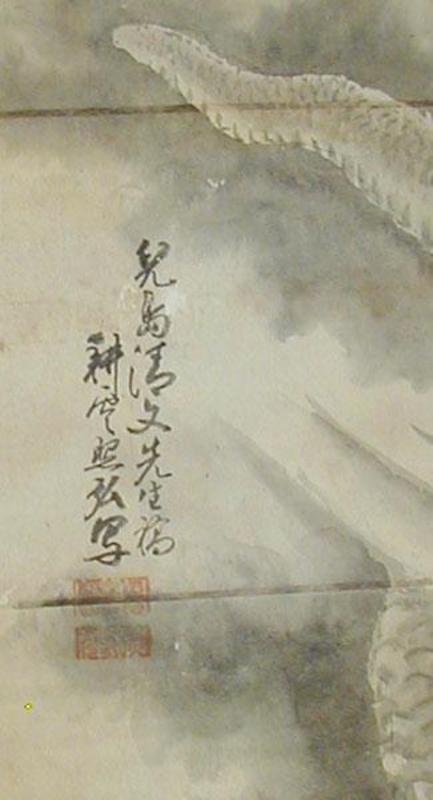 兒島清文先生稿
耕雲照弘写